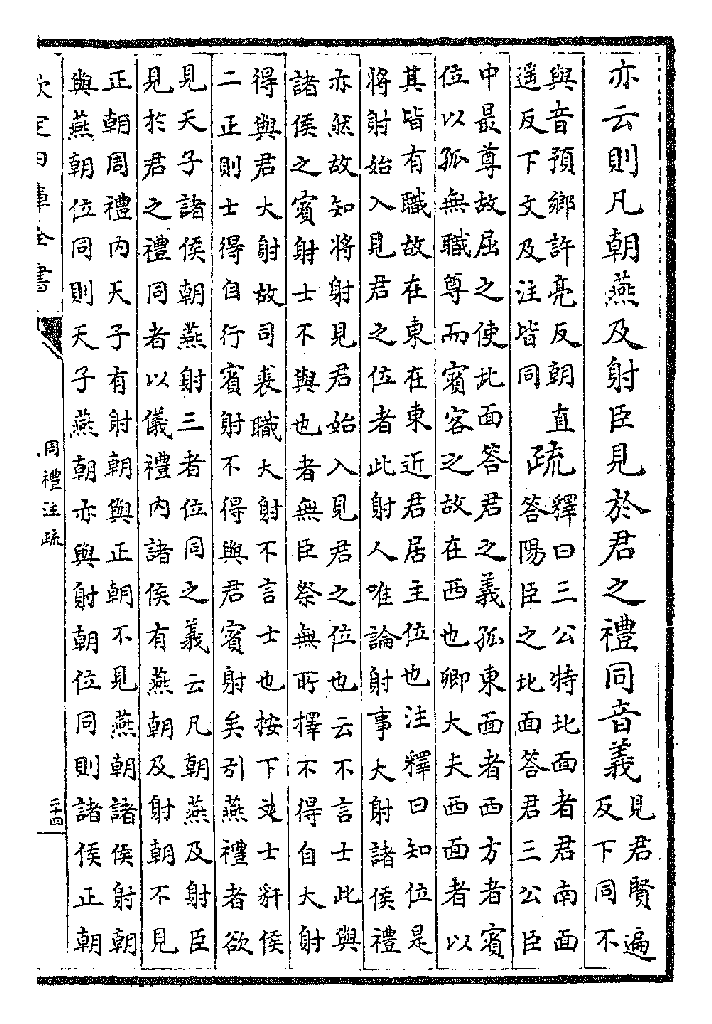 亦云則凡朝燕及射臣見於君之禮同音義見君賢遍
反下同不
與音預鄉許亮反朝直
遥反下文及注皆同
疏
釋曰三公特北面者君南面
答陽臣之北面答君三公臣
中最尊故屈之使北面答君之義孤東面者西方者賓
位以孤無職尊而賓客之故在西也卿大夫西面者以
其皆有職故在東在東近君居主位也注釋曰知位是
將射始入見君之位者此射人唯論射事大射諸侯禮
亦然故知將射見君始入見君之位也云不言士此與
諸侯之賓射士不與也者無臣祭無所擇不得自大射
得與君大射故司裘職大射不言士也按下文士豻侯
二正則士得自行賓射不得與君賓射矣引燕禮者欲
見天子諸侯朝燕射三者位同之義云凡朝燕及射臣
見於君之禮同者以儀禮内諸侯有燕朝及射朝不見
正朝周禮内天子有射朝與正朝不見燕朝諸侯射朝
與燕朝位同則天子燕朝亦與射朝位同則諸侯正朝
欽定四庫全書
周禮注疏